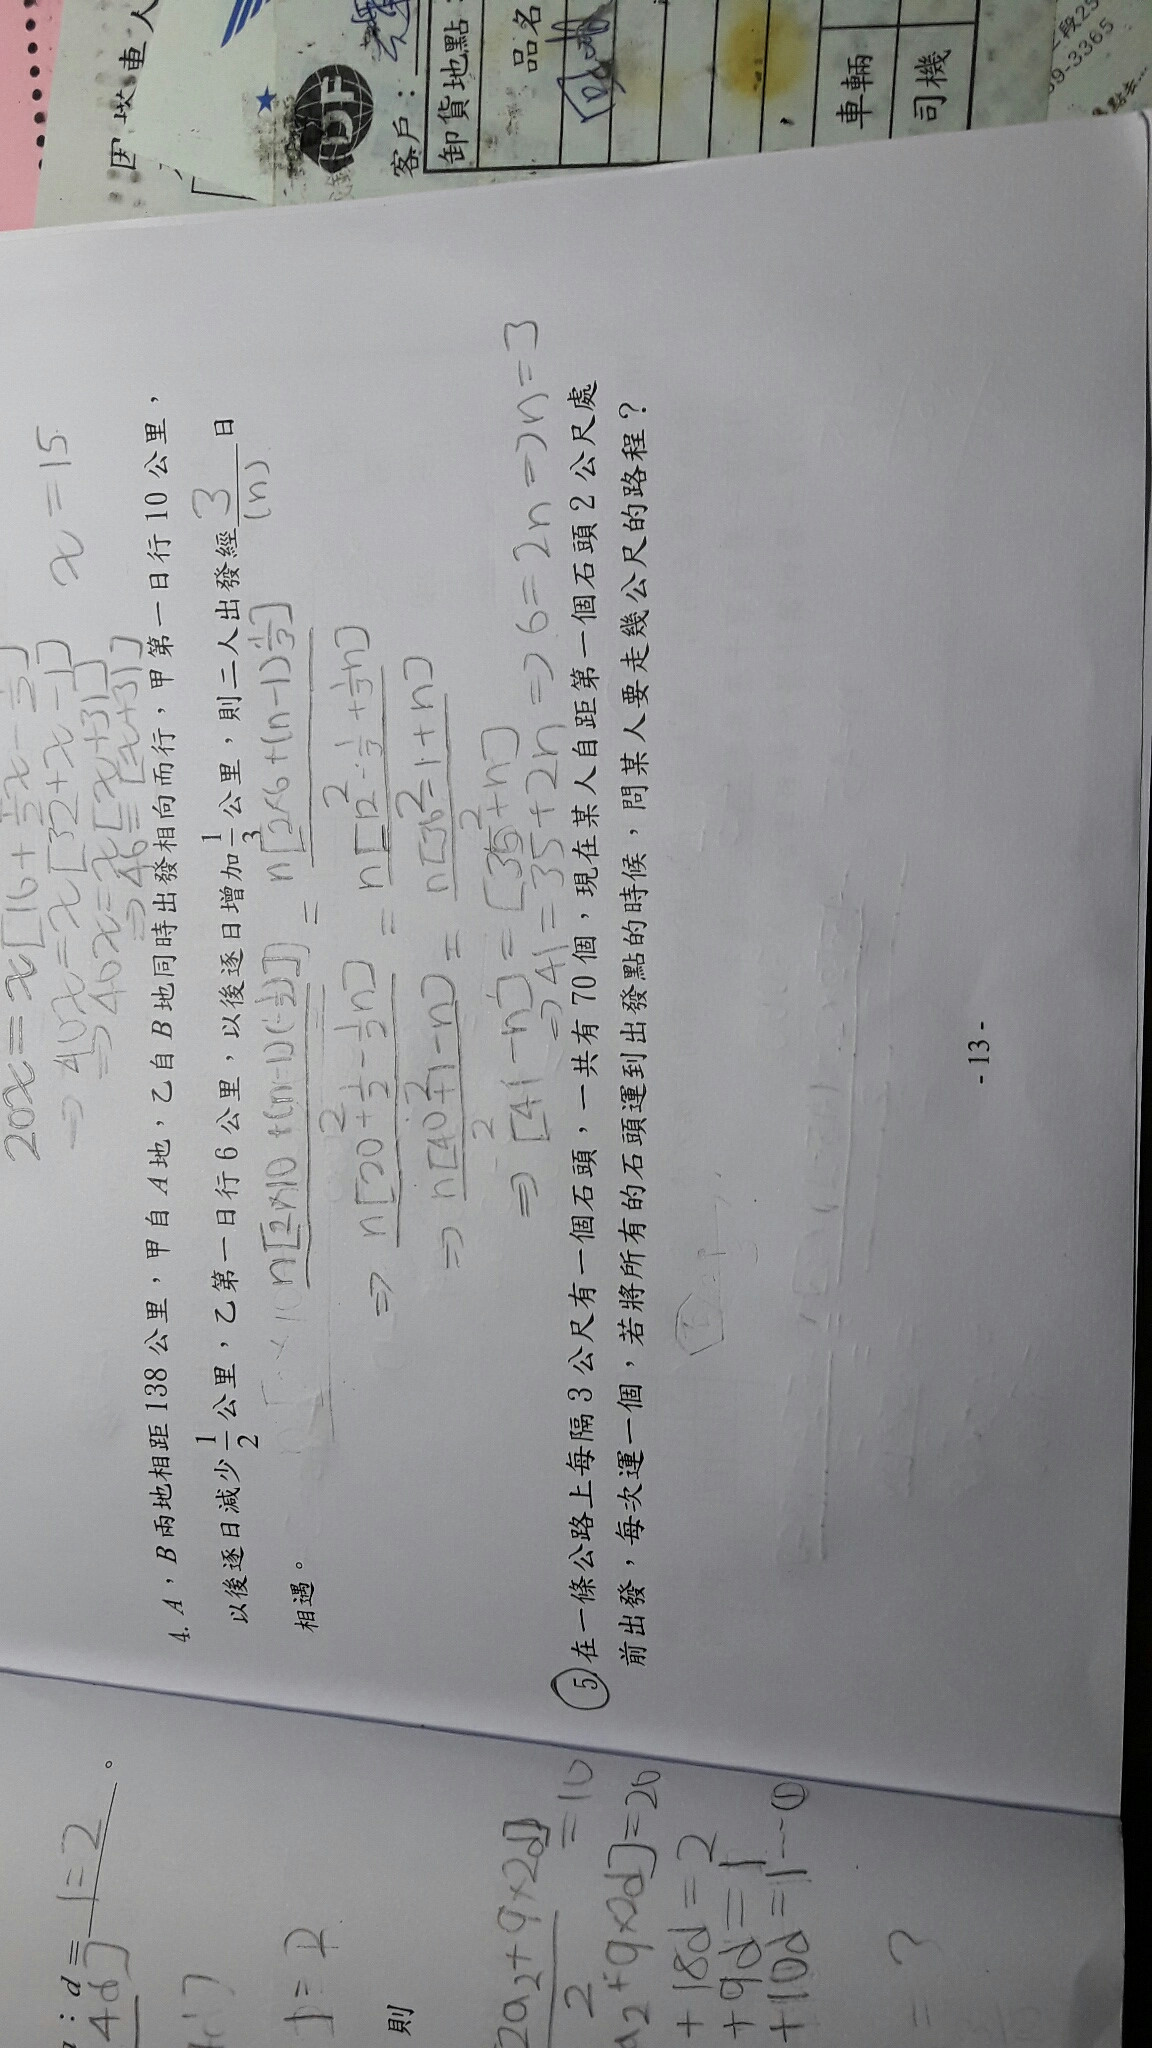 20x=x[16+
⇒40x=x[32+x-1]
⇒40x=x[x+31]
⇒40=[x+31]
x=15
4. A，B兩地相距138公里，甲自A地，乙自B地同時出發相向而行，甲第一日行10公里，
以後逐日減少1/2公里，乙第一日行6公里，以後逐日增加1/3公里，則二人出發經3(n)日
相遇。
n[2×10+(n-1)(-1/2)]/2 = n[2×6+(n-1)1/3]/2
⇒ n[20+1/2-1/2n]/2 = n[12-1/3+1/3n]/2
⇒ n[40+1-n]/2 = n[36-1+n]/2
⇒ [41-n]=[35+n]
⇒41=35+2n⇒6=2n⇒n=3
5 在一條公路上每隔3公尺有一個石頭，一共有70個，現在某人自距第一個石頭2公尺處
前出發，每次運一個，若將所有的石頭運到出發點的時候，問某人要走幾公尺的路程？
- 13 -
: d = 1=2 。
4d]
則
2a₂+9×2d]
2
=10
a₂+9×2d]=20
+18d=2
+9d=1
+10d=1---①
=?
DF
客戶：
卸貨地點
品名
車輛
司機
9-3365